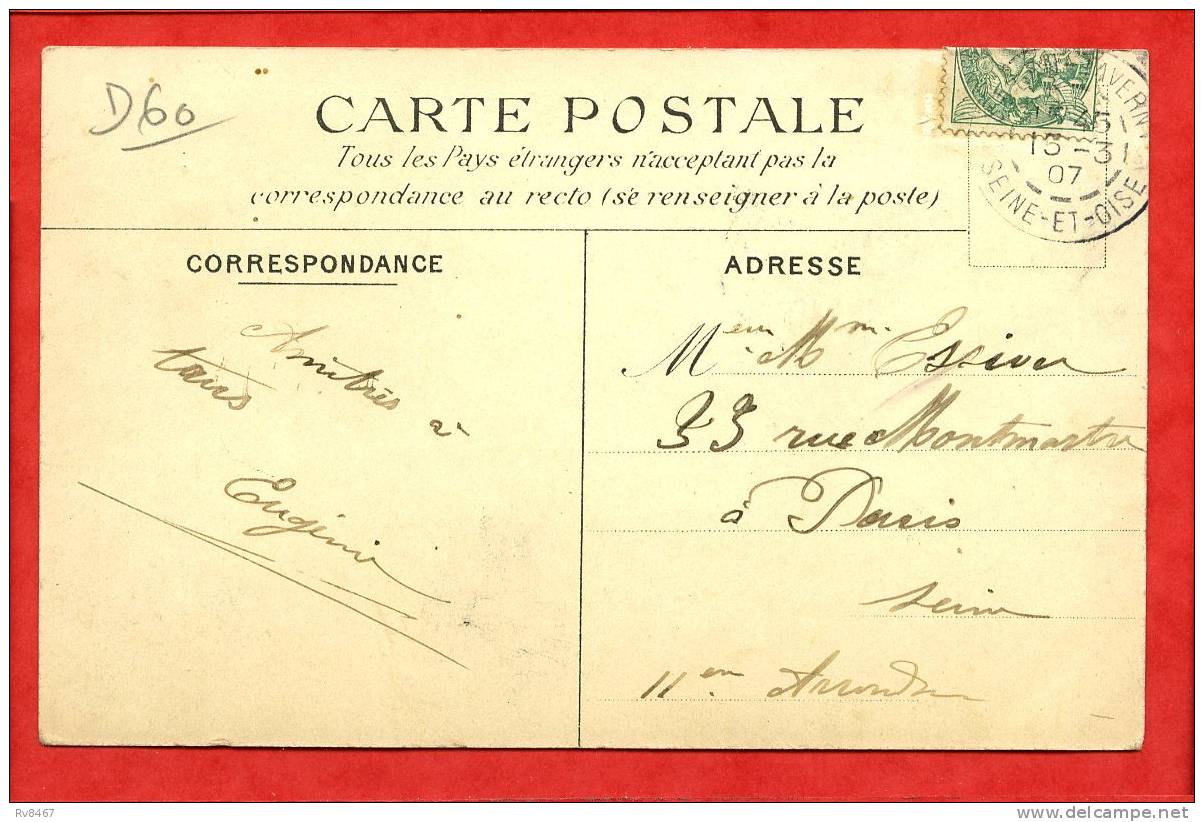 D60
CARTE POSTALE
Tous les Pays étrangers n'acceptant pas la
correspondance au recto (se renseigner à la poste)
AVERN
15 - 31
07
SEINE-ET-OISE
CORRESPONDANCE
Amitiés à
tous
Eugénie
ADRESSE
Meur Mm
33 rue Montmartre
à Paris
Seine
11em Arrond
Rv8467
www.delcampe.net